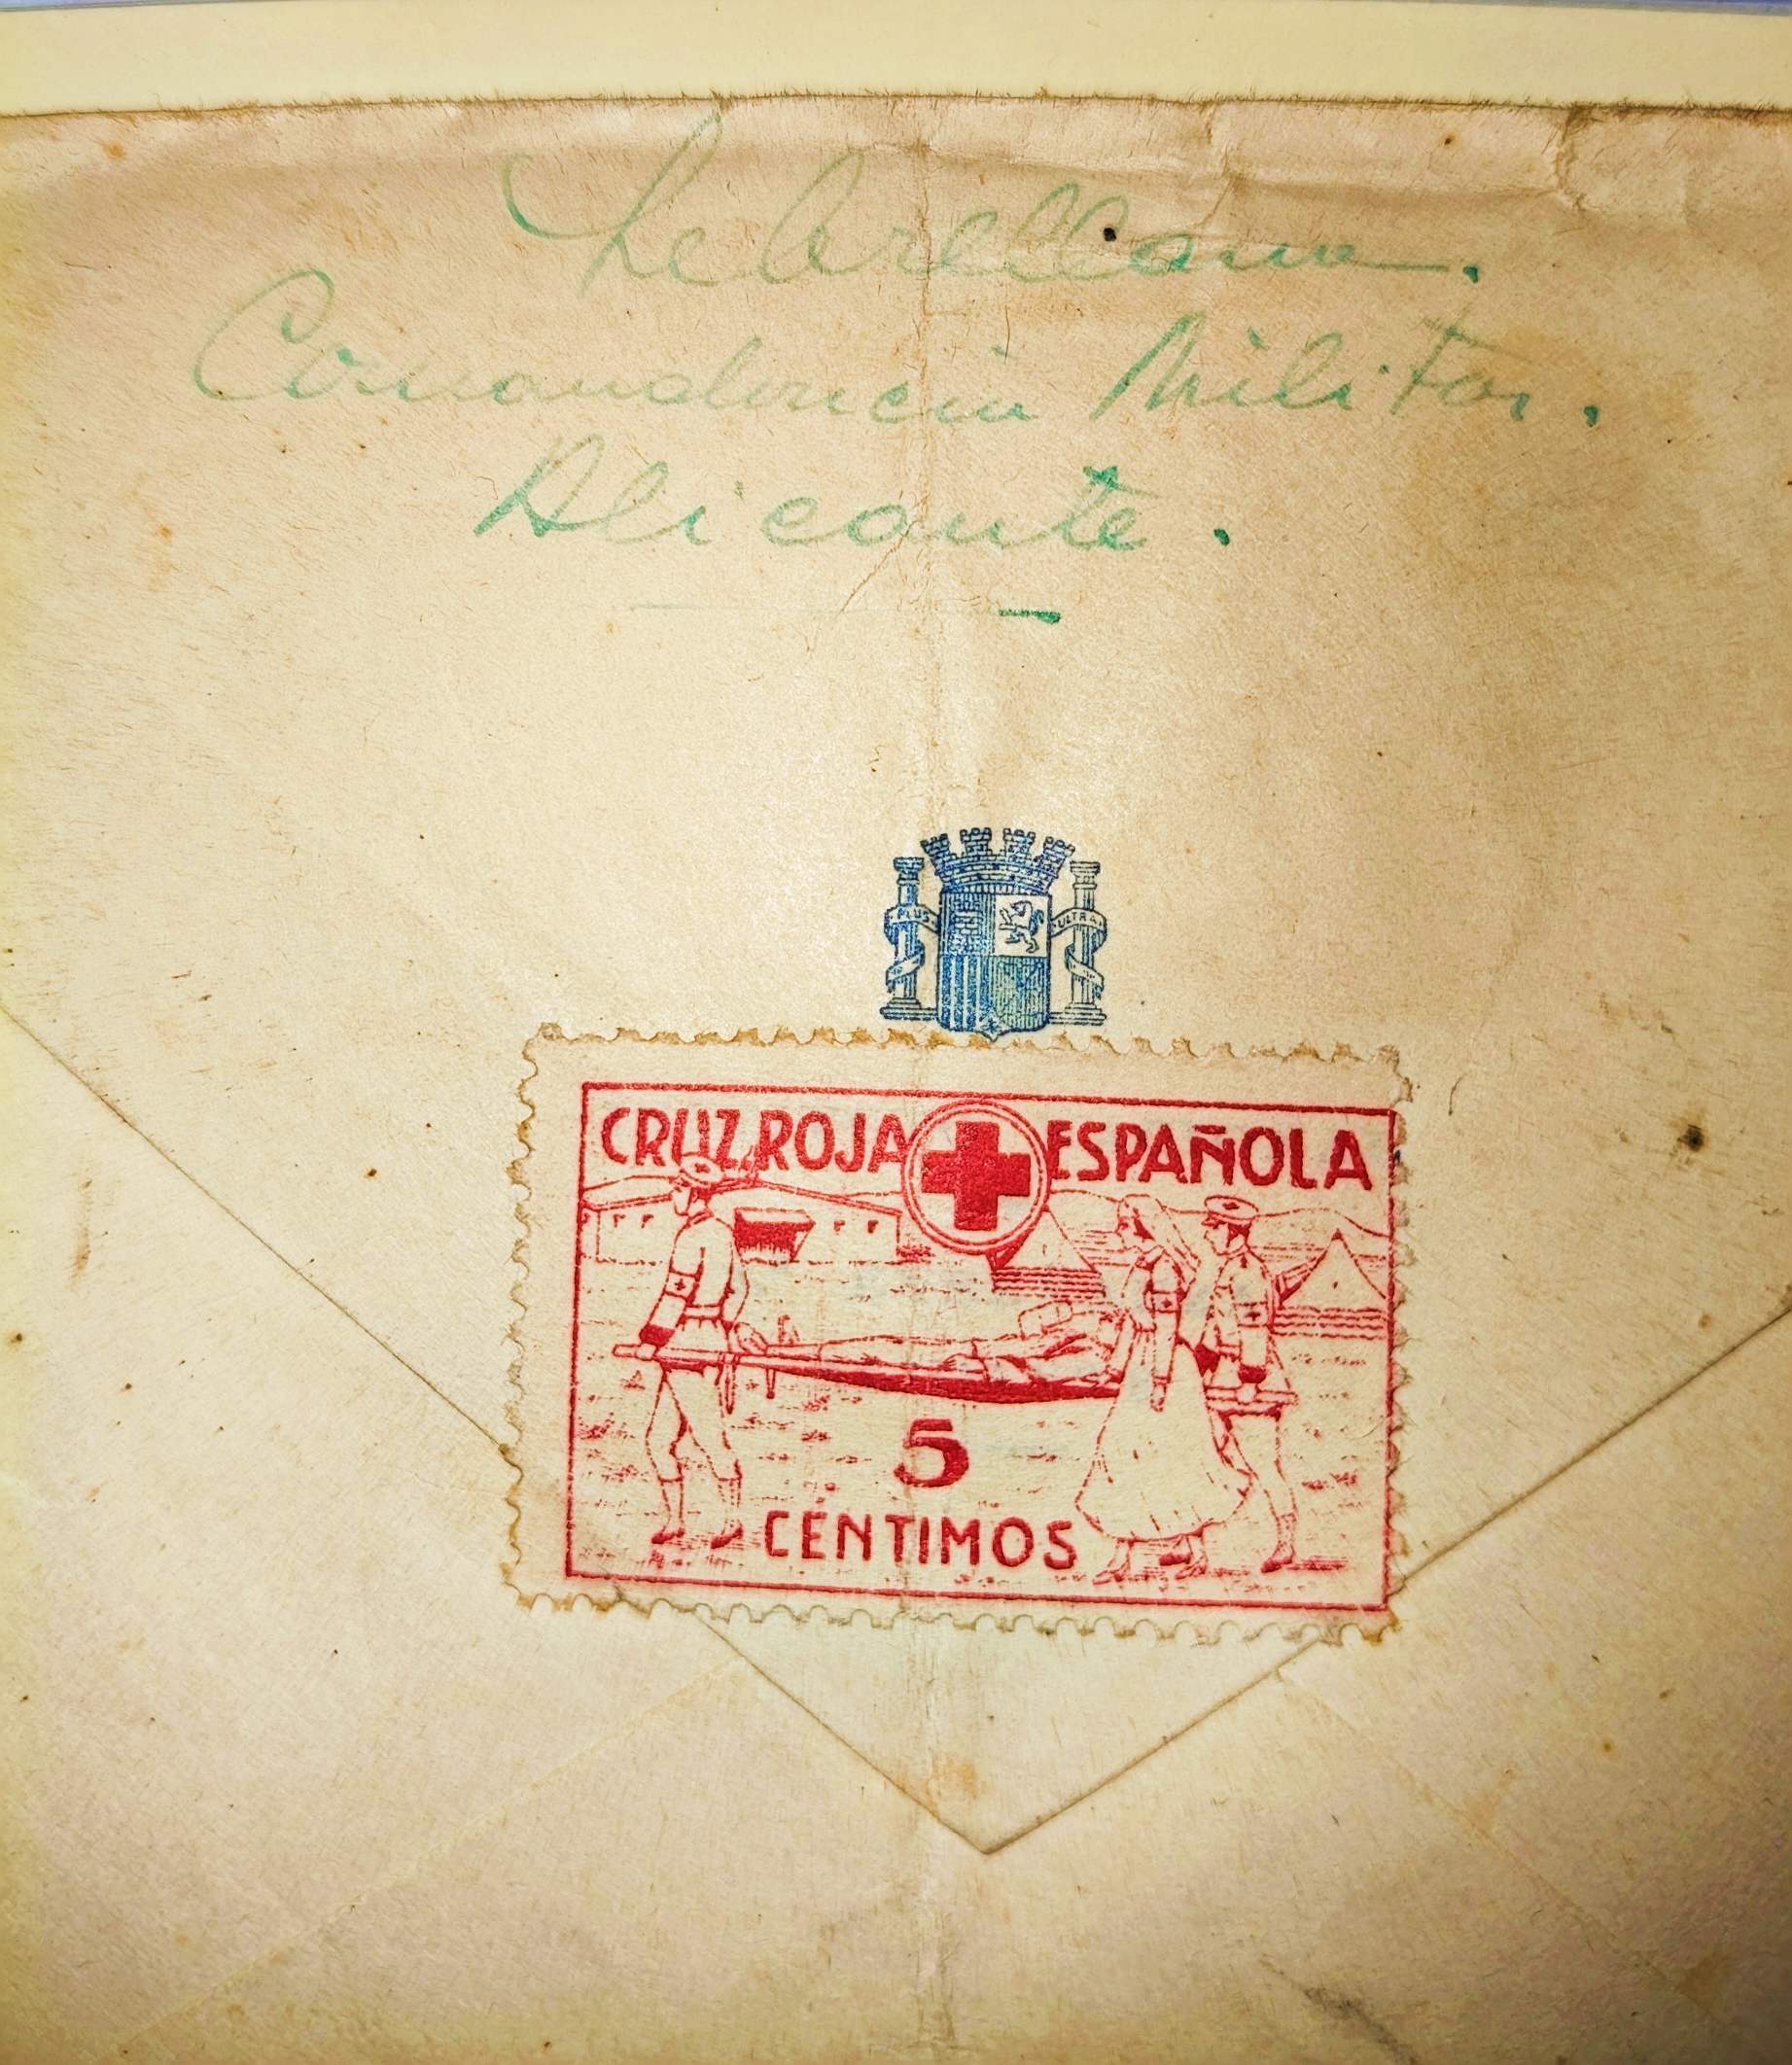 Comandancia Militar.
Alicante.
PLUS ULTRA
CRUZ ROJA ESPAÑOLA
5
CÉNTIMOS